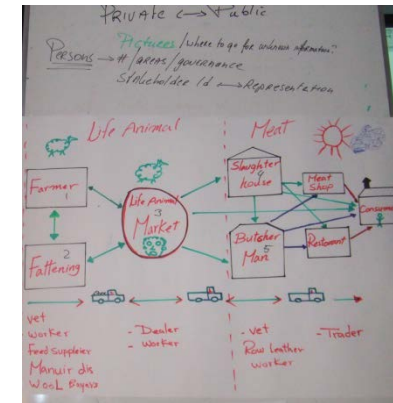 PRIVATE ←→ Public
Pictures / where to go for unknown information?
Persons → # / areas / governance
Stakeholder Id → Representation
Life Animal
Meat
Farmer
1
Fattening
2
Life Animal
3
Market
Slaughter
house
Butcher
Man 5
Meat
Shop
Restaurant
Consumer
vet
worker
Feed Supplaier
- Dealer
- worker
- vet
Row leather
worker
- Trader